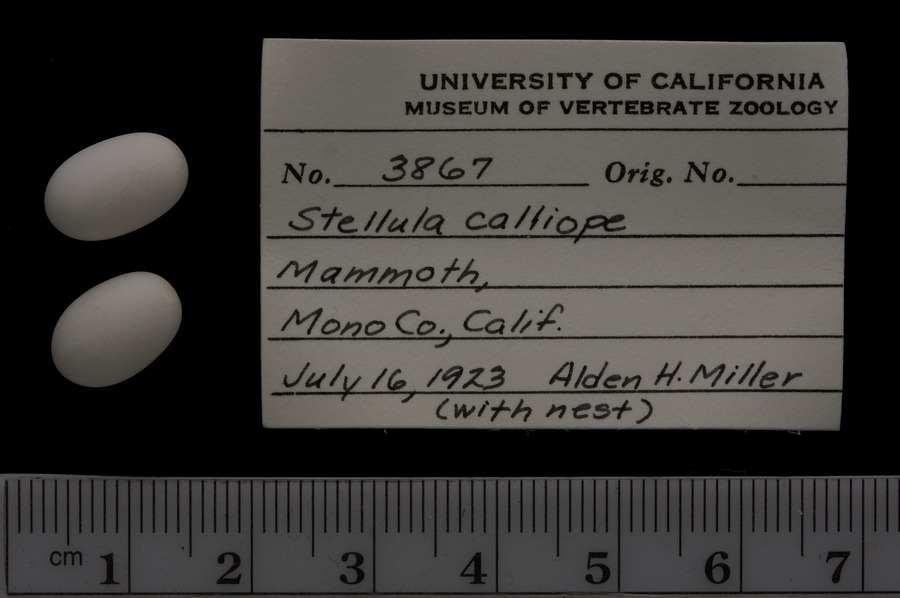 UNIVERSITY OF CALIFORNIA
MUSEUM OF VERTEBRATE ZOOLOGY
No. 3867 Orig. No.
Stellula calliope
Mammoth,
Mono Co., Calif.
July 16, 1923 Alden H. Miller
(with nest)
cm 1 2 3 4 5 6 7